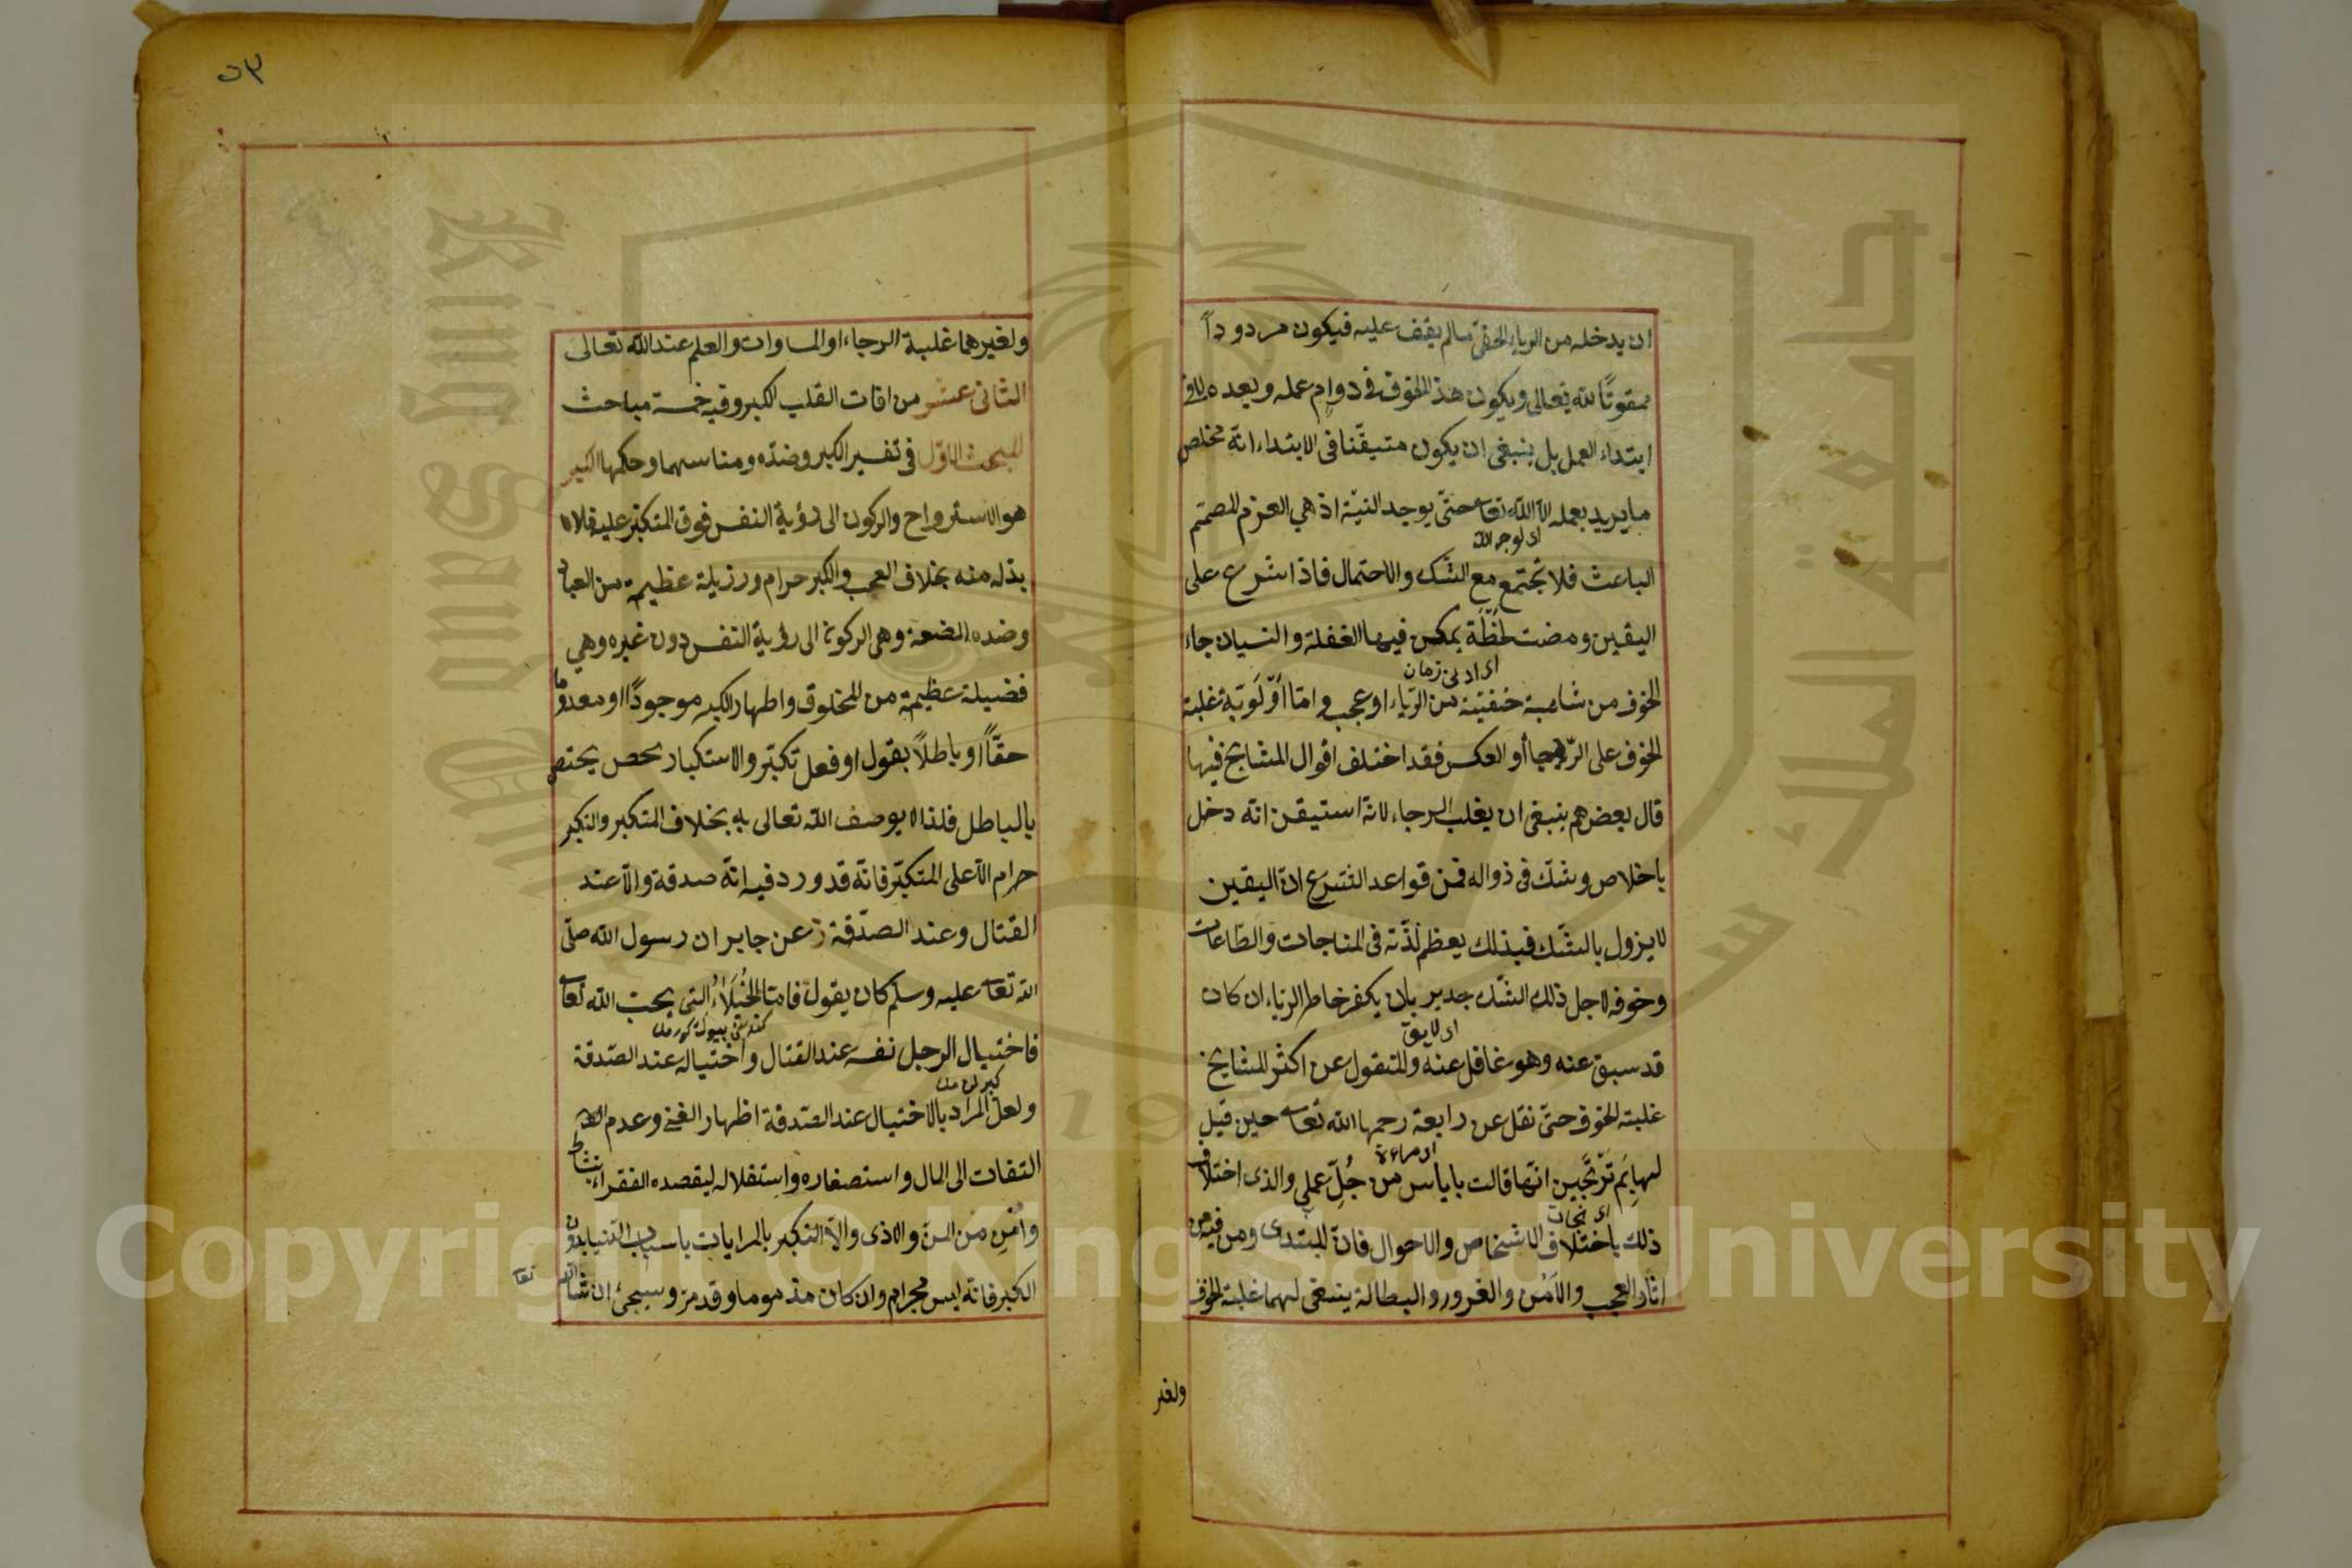 ان يدخله من الرياء الخفى مالم يقف عليه فيكون مردوداً
ممقوتًا لله تعالى ويكون هذا الخوف فى دوام عمله وبعده لا فى
ابتداء العمل بل ينبغى ان يكون متيقّنا فى الابتداء انه مخلص
ما يريد بعمله الا الله تعا حتى يوجد النيّة اذ هي العزم المصمّم
اى لوجه الله
الباعث فلا تجتمع مع الشك والاحتمال فاذا شرع على
اليقين ومضت لحظة يمكن فيها الغفلة والنسيان جاء
اى ادنى زمان
الخوف من شائبة خفيّة من الرياء او عجب واما اوّلويّة غلبة
الخوف على الرجا أو العكس فقد اختلف اقوال المشايخ فيها
قال بعضهم ينبغى ان يغلب الرجاء لانه استيقن انه دخل
باخلاص وشك فى زواله فمن قواعد الشرع ان اليقين
لا يزول بالشك فبذلك يعظم لذّته فى المناجات والطاعات
وخوفه لاجل ذلك الشك جدير بان يكفر خاطر الرياء ان كان
اى لايق
قد سبق عنه وهو غافل عنه والمنقول عن اكثر المشايخ
غلبة الخوف حتى نقل عن رابعة رحمها الله تعا حين قيل
لها بِمَ تَرْتَجين انها قالت باياس من جُلّ عملى والذى اختلاف
ذلك باختلاف الاشخاص والاحوال فان المبتدى ومن فيه من
اى نجات
اثار العجب والامن والغرور والبطالة ينبغى لهما غلبة الخوف
ولغير
٥٣
ولغيرهما غلبة الرجاء او المساوات والعلم عند الله تعالى
الثانى عشر من افات القلب الكبر وفيه خمسة مباحث
المبحث الاول فى تفسير الكبر وضدّه ومناسبهما وحكمها الكبر
هو الاسترواح والركون الى رؤية النفس فوق المتكبّر عليه فلا
بدله منه بخلاف العجب والكبر حرام ورزيلة عظيمة من العباد
وضده الضعة وهى الركون الى رؤية النفس دون غيره وهي
فضيلة عظيمة من المخلوق واظهار الكبر موجودًا او معدوما
حقًّا او باطلًا بقول او فعل تكبّر والاستكبار يختص
بالباطل فلذا لا يوصف الله تعالى به بخلاف المتكبر والتكبر
حرام الا على المتكبّر فانه قد ورد فيه انه صدقة والا عند
القتال وعند الصدقة عن جابر ان رسول الله صلى
الله تعا عليه وسلم كان يقول فاما الخُيَلاءُ التى يحبّ الله تعا
فاختيال الرجل نفسه عند القتال واختياله عند الصدقة
ولعل المراد بالاختيال عند الصدقة اظهار الغنى وعدم
التفات الى المال واستصغاره واستقلاله ليقصده الفقراء بنشاط
وأمن من المنّ والاذى والا التكبر بالمرايات باسباب الدنيا بدون
الكبر فانه ليس بحرام وان كان مذموما وقد مرّ وسيجئ ان شاء الله
تعا